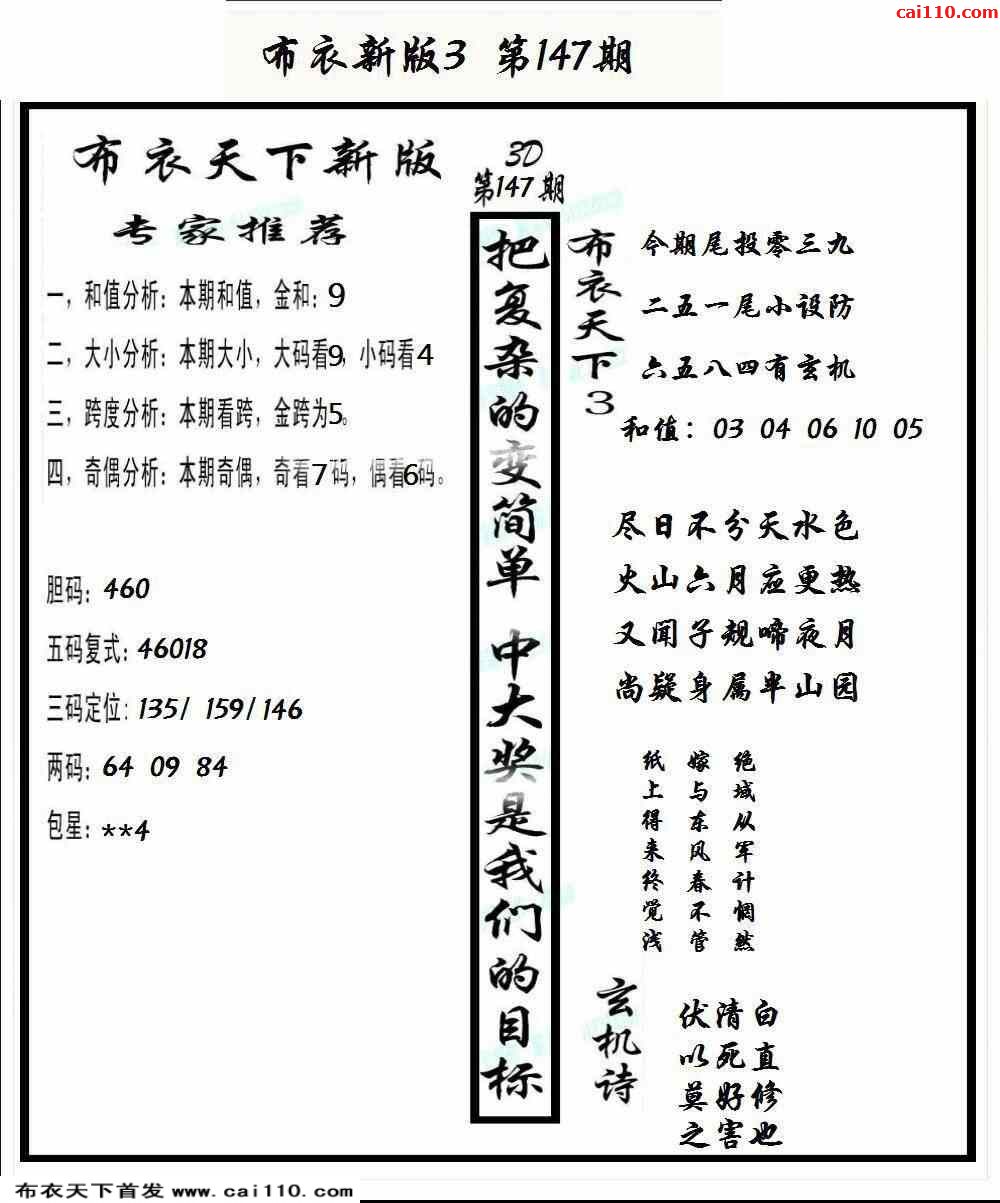 cai110.com
布衣新版3 第147期
布衣天下新版
专家推荐
一，和值分析：本期和值，金和：9
二，大小分析：本期大小，大码看9，小码看4
三，跨度分析：本期看跨，金跨为5。
四，奇偶分析：本期奇偶，奇看7码，偶看6码。
胆码：460
五码复式：46018
三码定位：135/ 159/146
两码：64 09 84
包星：**4
3D
第147期
把复杂的变简单 中大奖是我们的目标
布衣天下3
今期尾投零三九
二五一尾小设防
六五八四有玄机
和值：03 04 06 10 05
尽日不分天水色
火山六月应更热
又闻子规啼夜月
尚疑身属半山园
纸上得来终觉浅
嫁与东风春不管
绝域从军计惘然
玄机诗
伏清白
以死直
莫好修
之害也
布衣天下首发 www.cai110.com